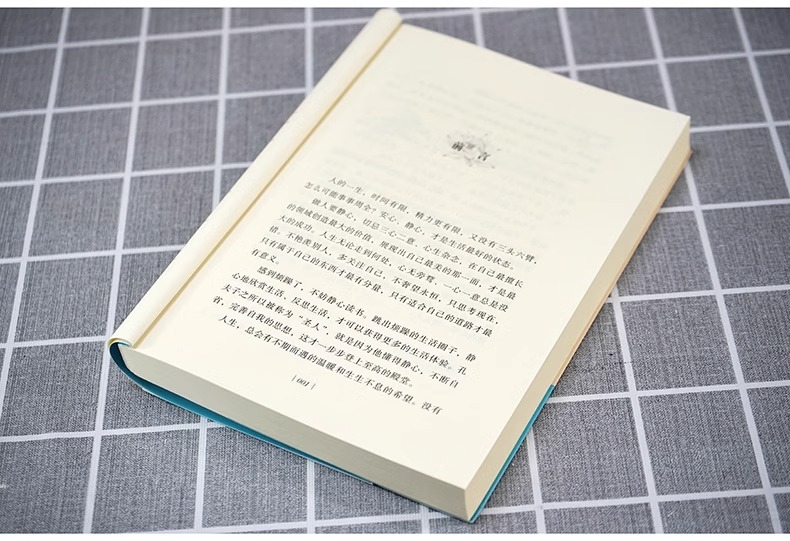 前言
人的一生，时间有限，精力更有限，又没有三头六臂，
怎么可能事事周全？安心、静心，才是生活最好的状态。
做人要静心，切忌三心二意，心生杂念，在自己最擅长
的领域创造最大的价值，展现出自己最美的那一面，才是最
大的成功。人生无论走到何处，心无旁骛，一心一意总是没
错。不艳羡别人，多关注自己，不奢望永恒，只思考现在，
只有属于自己的东西才最有分量，只有适合自己的道路才最
有意义。
感到烦躁了，不妨静心读书，跳出烦躁的生活圈子，静
心地欣赏生活、反思生活，才可以获得更多的生活体验。孔
夫子之所以被称为“圣人”，就是因为他懂得静心，不断自
省，完善自我的思想，这才一步步登上至高的殿堂。
人生，总会有不期而遇的温暖和生生不息的希望。没有
| 001 |